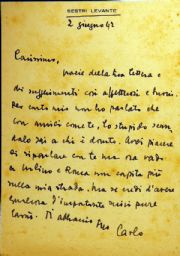 SESTRI LEVANTE
2 giugno 42
Carissimo,
grazie della tua lettera e
dei suggerimenti così affettuosi e
Per conto mio non ho parlato che
con amici come te, lo stupido
dalo sai a chi è dovuto. Avrei piacere
di riparlare con te ma ora vado
a Urbino e Roma non capita più
sulla mia strada. Ma se credi d'avere
qualcosa d'importante scrivi pure
. Ti abbraccio tuo Carlo